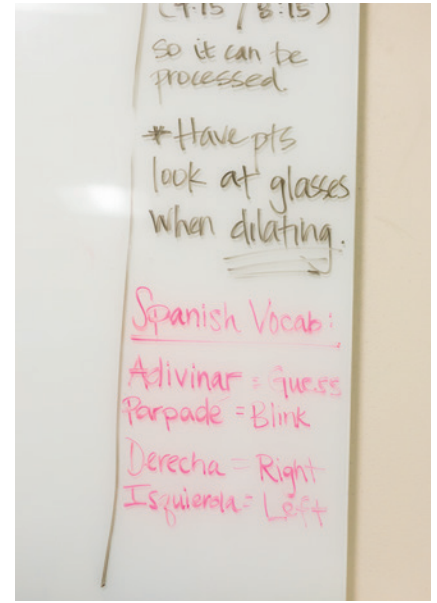 so it can be
processed.
*Have pts
look at glasses
when dilating.
Spanish Vocab:
Adivinar = Guess
Parpadé = Blink
Derecha = Right
Isquierda = Left